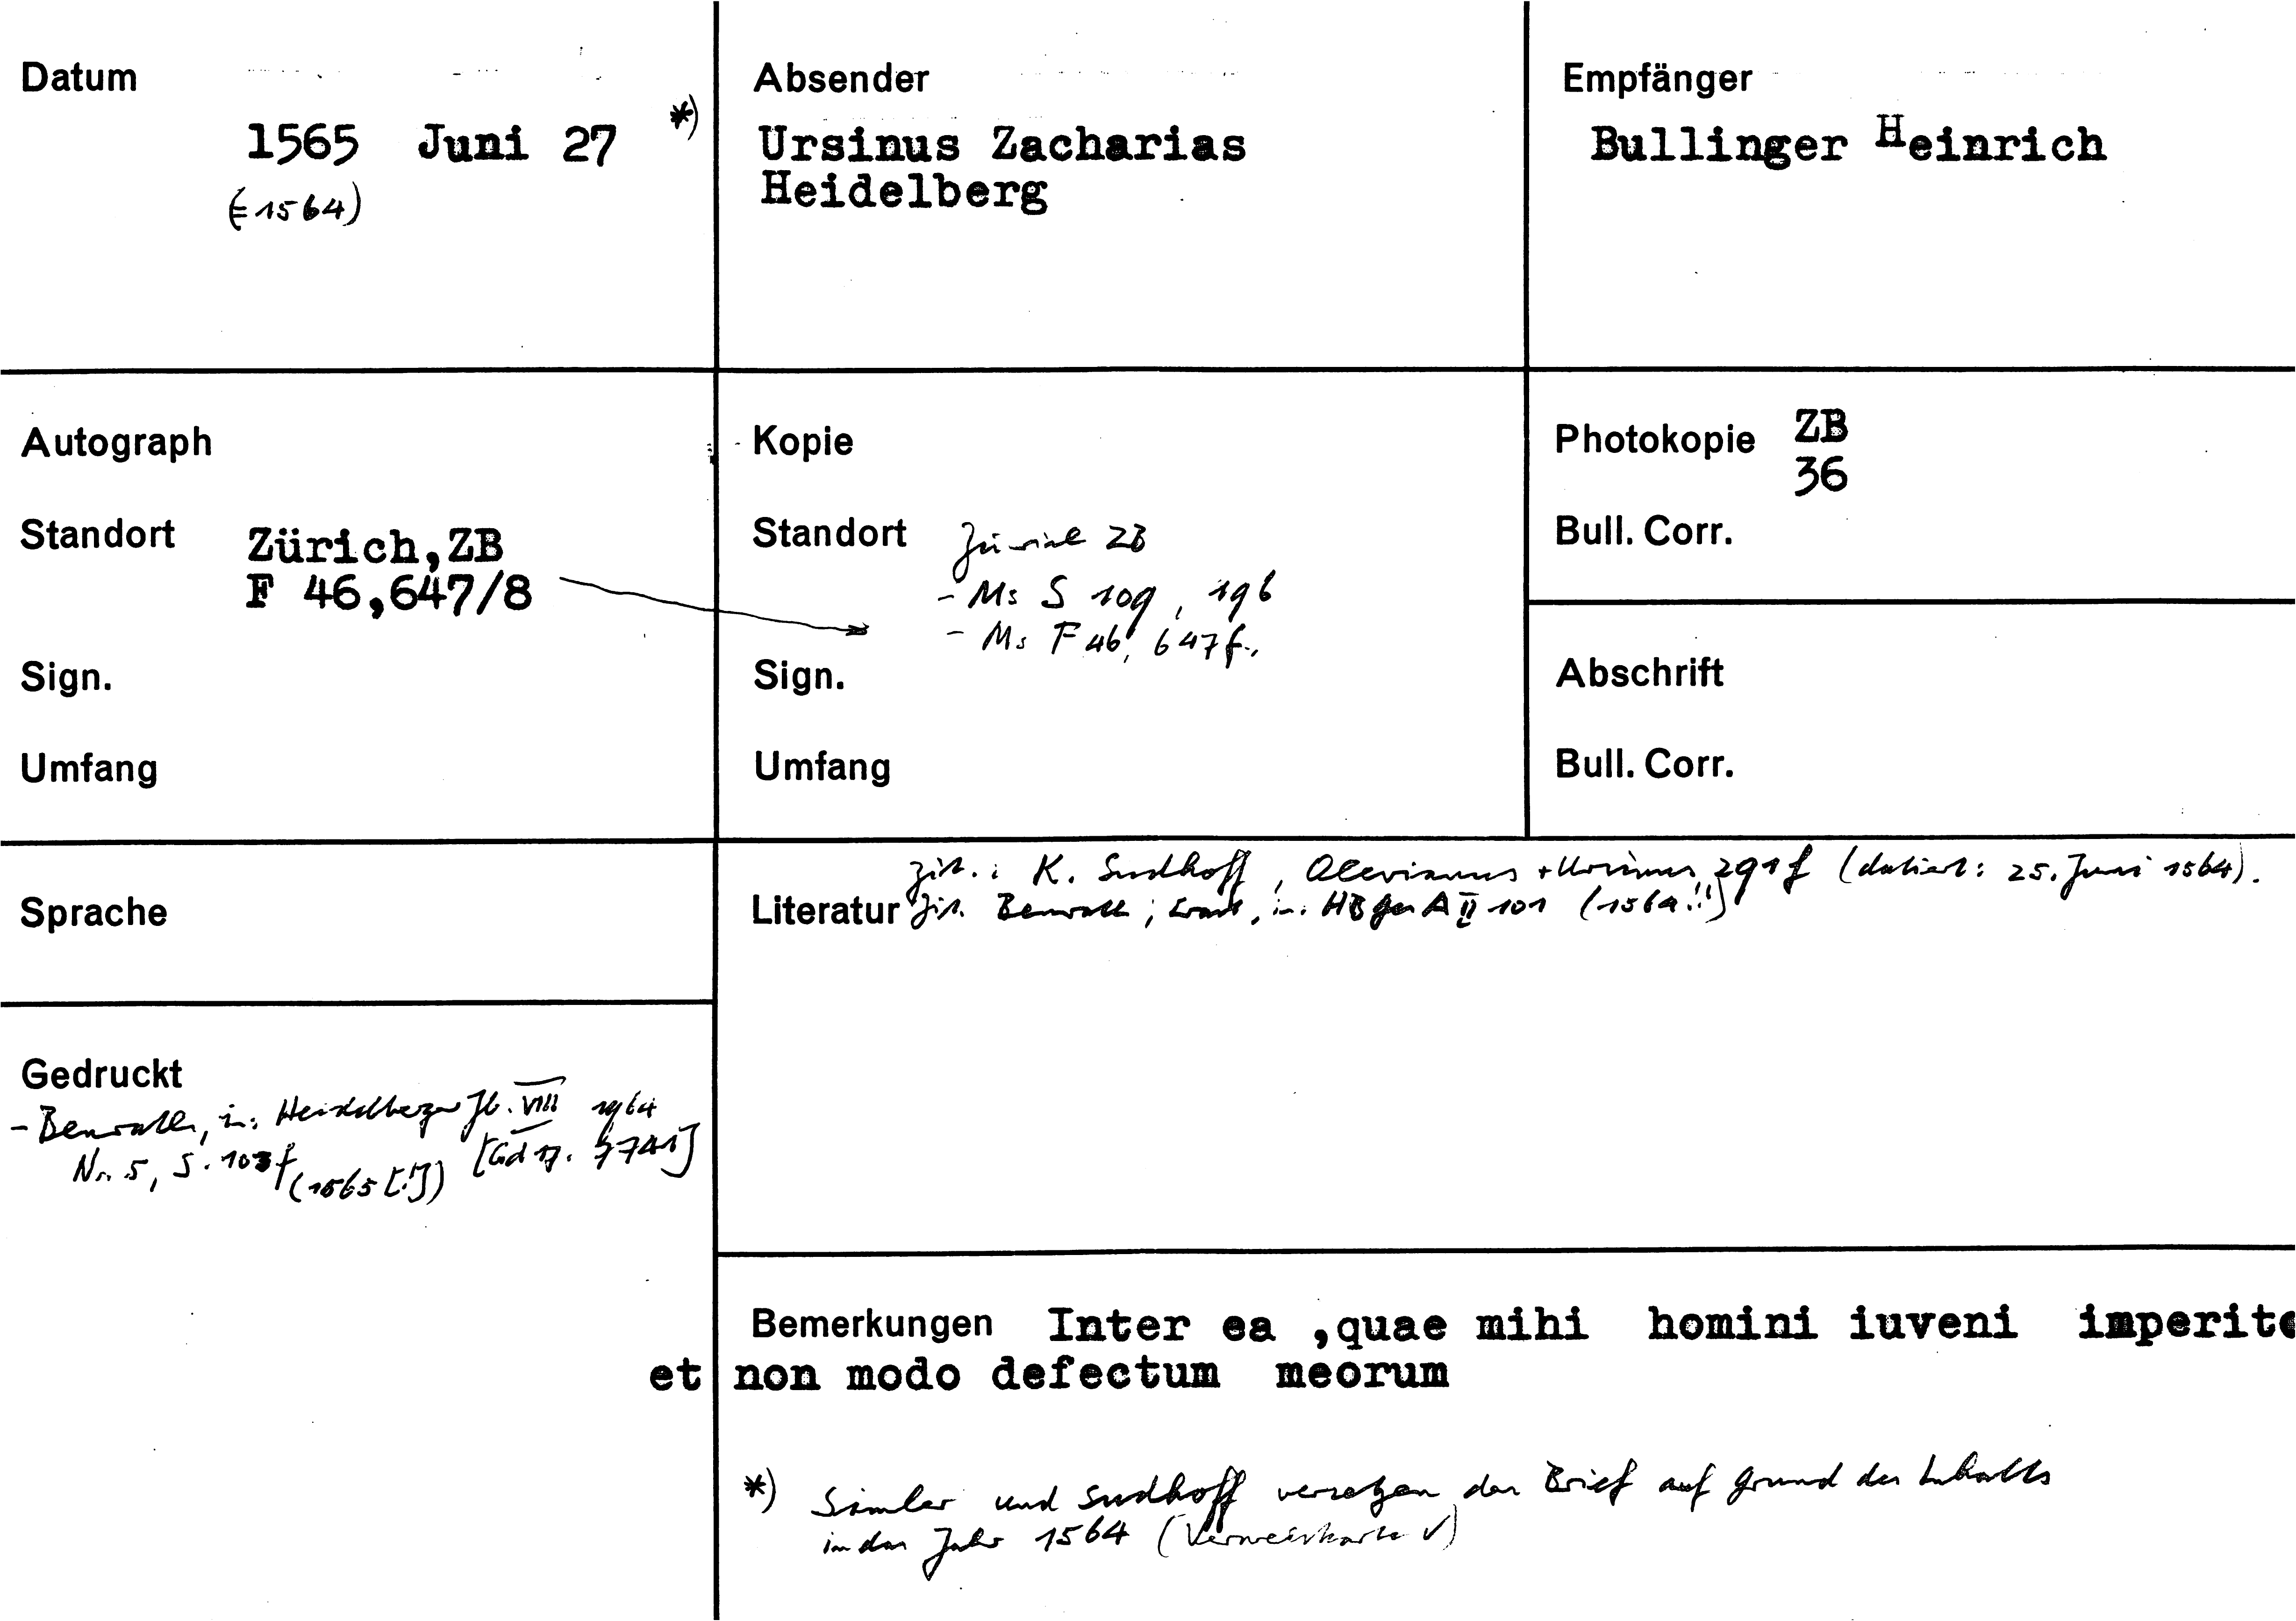 Datum
1565 Juni 27 *)
(= 1564)
Absender
Ursinus Zacharias
Heidelberg
Empfänger
Bullinger Heinrich
Autograph
Standort Zürich,ZB
F 46,647/8
Sign.
Umfang
Kopie
Standort Zürich ZB
- Ms S 109, 196
- Ms F 46, 647f.
Sign.
Umfang
Photokopie ZB
36
Bull. Corr.
Abschrift
Bull. Corr.
Sprache
zit.: K. Sudhoff, Olevianus + Ursinus 291f (datiert: 25. Juni 1564).
Literatur zit. Benrath, in: HB A II 101 (1564!!)
Gedruckt
- Benrath, in: Heidelberger Jb. VIII 1964
Nr. 5, S. 103f (1565 [!]) [Gd 17. 7741]
Bemerkungen Inter ea ,quae mihi homini iuveni imperito
et non modo defectum meorum
*) Simler und Sudhoff versetzen den Brief auf Grund des Inhalts
in das Jahr 1564 (Verweiskarte ✓)